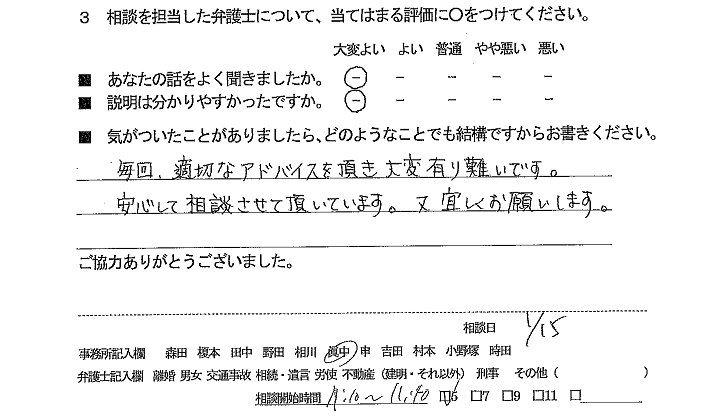 3 相談を担当した弁護士について、当てはまる評価に〇をつけてください。
大変よい よい 普通 やや悪い 悪い
■ あなたの話をよく聞きましたか。 － － － － －
■ 説明は分かりやすかったですか。 － － － － －
■ 気がついたことがありましたら、どのようなことでも結構ですからお書きください。
毎回、適切なアドバイスを頂き大変有り難いです。
安心して相談させて頂いています。又宜しくお願いします。
ご協力ありがとうございました。
相談日 1/15
事務所記入欄 森田 榎本 田中 野田 相川 眞中 申 吉田 村本 小野塚 時田
弁護士記入欄 離婚 男女 交通事故 相続・遺言 労使 不動産（建明・それ以外） 刑事 その他（ ）
相談開始時間 11:40 □5 □7 □9 □11 □